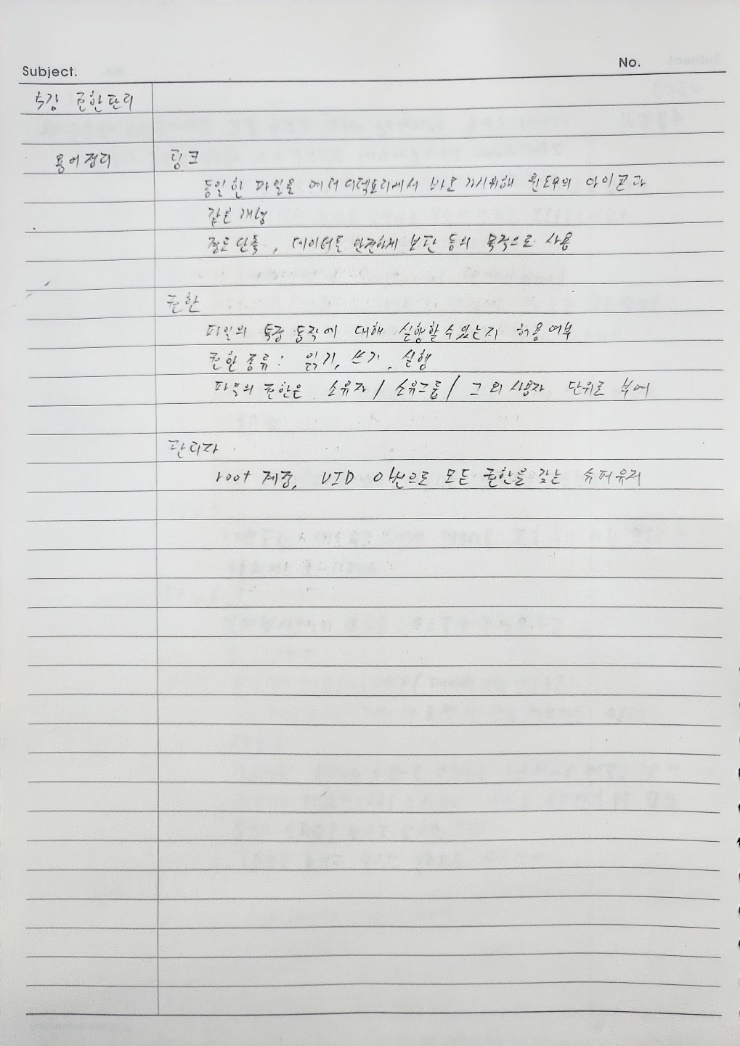 Subject.
No.
5강 권한관리
용어정리
링크
동일한 파일을 여러 디렉토리에서 바로 가기위해 윈도우의 아이콘과
같은 개념
경로 단축, 데이터를 안전하게 보관 등의 목적으로 사용
권한
파일의 특정 동작에 대해 실행할 수 있는지 허용여부
권한 종류: 읽기, 쓰기, 실행
파일의 권한은 소유자/소유그룹/그 외 사용자 단위로 부여
관리자
root 계정, UID 0번으로 모든 권한을 갖는 슈퍼유저